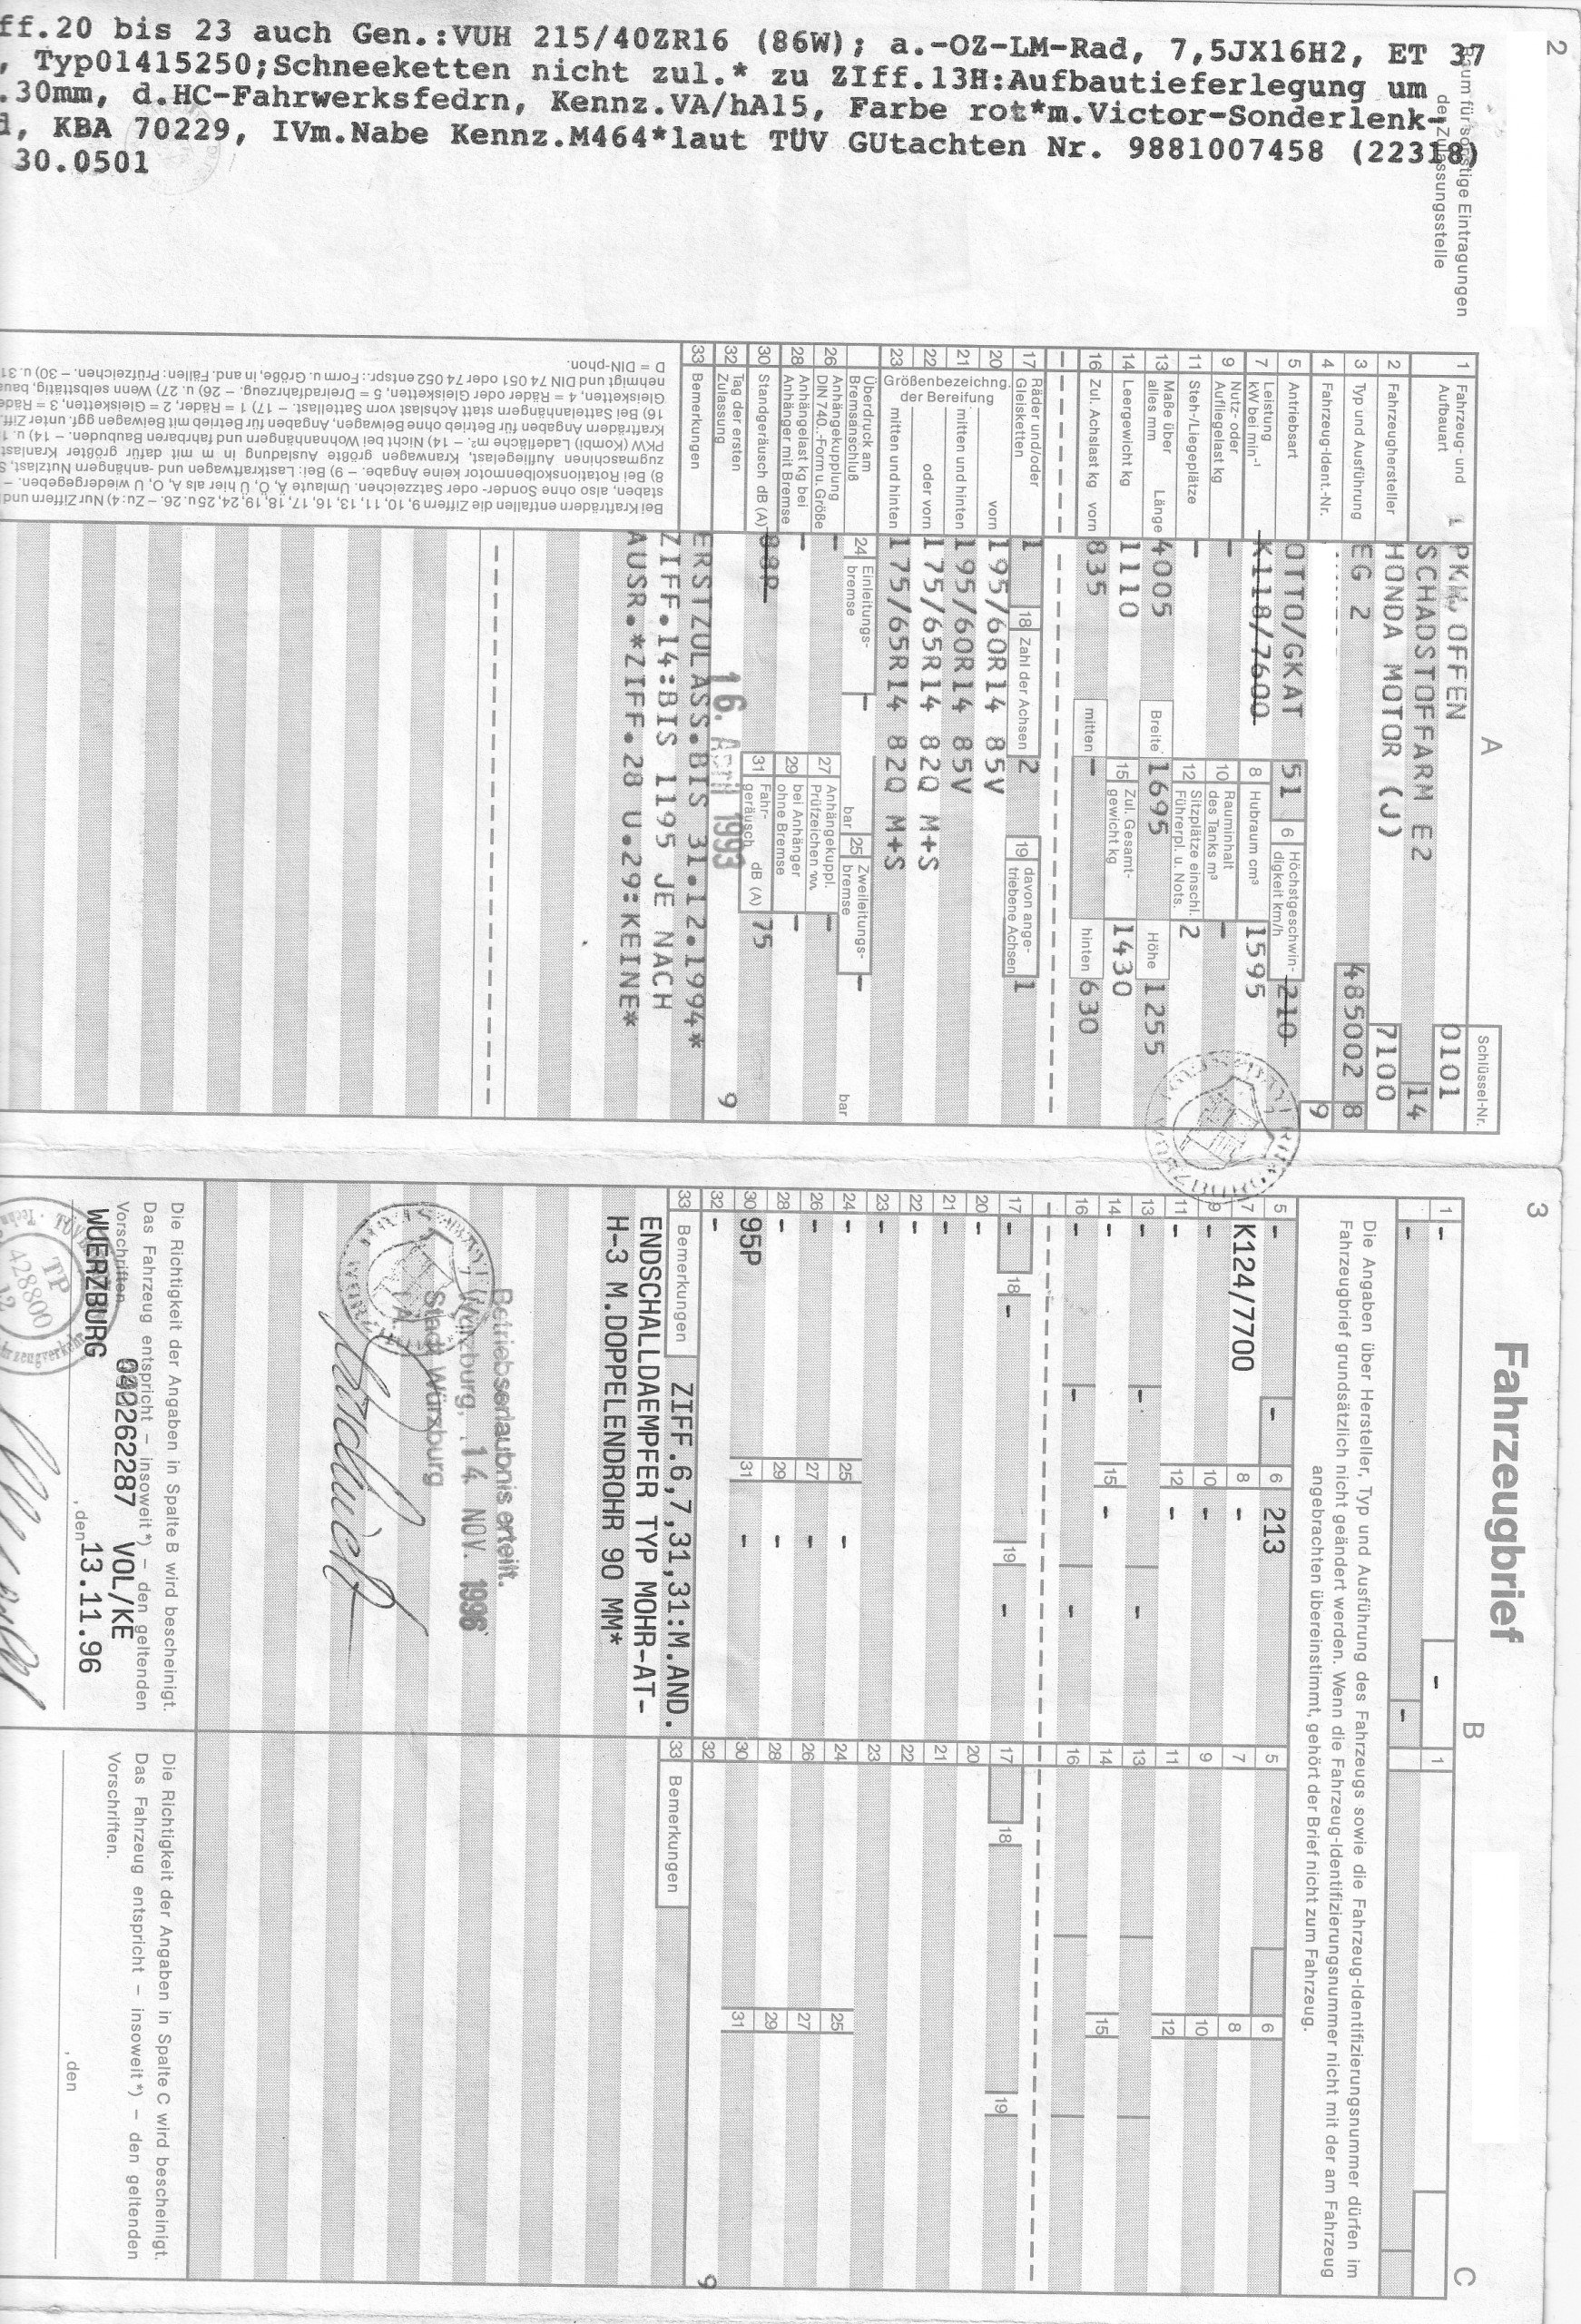 ff.20 bis 23 auch Gen.:VUH 215/40ZR16 (86W); a.-OZ-LM-Rad, 7,5JX16H2, ET 37
, Typ01415250;Schneeketten nicht zul.* zu ZIff.13H:Aufbautieferlegung um
.30mm, d.HC-Fahrwerksfedrn, Kennz.VA/hA15, Farbe rot*m.Victor-Sonderlenk-
d, KBA 70229, IVm.Nabe Kennz.M464*laut TÜV GUtachten Nr. 9881007458 (22318)
30.0501
2
Raum für sonstige Eintragungen
der Zulassungsstelle
A
Schlüssel-Nr.
1 Fahrzeug- und Aufbauart 1 PKW, OFFEN 0101
SCHADSTOFFARM E2 14
2 Fahrzeughersteller HONDA MOTOR (J) 7100
3 Typ und Ausführung EG 2 485002 8
4 Fahrzeug-Ident.-Nr. 9
5 Antriebsart OTTO/GKAT 51 6 Höchstgeschwin-digkeit km/h 210
7 Leistung kW bei min-1 K118/7600 8 Hubraum cm³ 1595
9 Nutz- oder Aufliegelast kg - 10 Rauminhalt des Tanks m³ -
11 Steh-/Liegeplätze - 12 Sitzplätze einschl. Führerpl. u. Nots. 2
13 Maße über alles mm Länge 4005 Breite 1695 Höhe 1255
14 Leergewicht kg 1110 15 Zul. Gesamt-gewicht kg 1430
16 Zul. Achslast kg vorn 835 mitten - hinten 630
17 Räder und/oder Gleisketten 1 18 Zahl der Achsen 2 19 davon ange-triebene Achsen 1
Größenbezeichng. der Bereifung
20 vorn 195/60R14 85V
21 mitten und hinten 195/60R14 85V
22 oder vorn 175/65R14 82Q M+S
23 mitten und hinten 175/65R14 82Q M+S
Überdruck am Bremsanschluß 24 Einleitungs-bremse - bar 25 Zweileitungs-bremse - bar
26 Anhängekupplung DIN 740..-Form u. Größe - 27 Anhängekuppl. Prüfzeichen -
28 Anhängelast kg bei Anhänger mit Bremse - 29 bei Anhänger ohne Bremse -
30 Standgeräusch dB (A) 88P 31 Fahr-geräusch dB (A) 75
32 Tag der ersten Zulassung 16. April 1993 9
33 Bemerkungen ERSTZULASS.BIS 31.12.1994*
ZIFF.14:BIS 1195 JE NACH
AUSR.*ZIFF.28 U.29:KEINE*
Bei Krafträdern entfallen die Ziffern 9, 10, 11, 13, 16, 17, 18, 19, 24, 25 u. 26. – Zu: 4) Nur Ziffern und
staben, also ohne Sonder- oder Satzzeichen. Umlaute Ä, Ö, Ü hier als A, O, U wiedergegeben. –
8) Bei Rotationskolbenmotor keine Angabe. – 9) Bei: Lastkraftwagen und -anhängern Nutzlast,
zugmaschinen Aufliegelast, Kranwagen größte Ausladung in m mit dafür größter Kranlast
PKW (Kombi) Ladefläche m². – 14) Nicht bei Wohnanhängern und fahrbaren Baubuden. – 14) u.
Krafträdern Angaben für Betrieb ohne Beiwagen, Angaben für Betrieb mit Beiwagen ggf. unter Ziff.
16) Bei Sattelanhängern statt Achslast vorn Sattellast. – 17) 1 = Räder, 2 = Gleisketten, 3 = Räde
Gleisketten, 4 = Räder oder Gleisketten, 5 = Dreiradfahrzeug. – 26) u. 27) Wenn selbsttätig, baua
nehmigt und DIN 74 051 oder 74 052 entspr.: Form u. Größe, in and. Fällen: Prüfzeichen. – 30) u. 31
D = DIN-phon.
3
Fahrzeugbrief
B
C
Die Angaben über Hersteller, Typ und Ausführung des Fahrzeugs sowie die Fahrzeug-Identifizierungsnummer dürfen im
Fahrzeugbrief grundsätzlich nicht geändert werden. Wenn die Fahrzeug-Identifizierungsnummer nicht mit der am Fahrzeug
angebrachten übereinstimmt, gehört der Brief nicht zum Fahrzeug.
1 - - 1
- -
5 - - 6 213 5 6
7 K124/7700 8 - 7 8
9 - 10 - 9 10
11 - 12 - 11 12
13 - - - 13
14 - 15 - 14 15
16 - - - 16
17 - 18 - 19 - 17 18 19
20 - 20
21 - 21
22 - 22
23 - 23
24 - 25 - 24 25
26 - 27 - 26 27
28 - 29 - 28 29
30 95P 31 - 30 31
32 - 32 9
33 Bemerkungen ZIFF.6,7,31,31:M.AND. 33 Bemerkungen
ENDSCHALLDAEMPFER TYP MOHR-AT-
H-3 M.DOPPELENDROHR 90 MM*
Betriebserlaubnis erteilt.
Würzburg, 14. NOV. 1996
Stadt Würzburg
I.A.
Die Richtigkeit der Angaben in Spalte B wird bescheinigt.
Das Fahrzeug entspricht – insoweit *) – den geltenden
Vorschriften.
040262287 VOL/KE
WUERZBURG , den 13.11.96
TP
428800
12
Die Richtigkeit der Angaben in Spalte C wird bescheinigt.
Das Fahrzeug entspricht – insoweit *) – den geltenden
Vorschriften.
, den